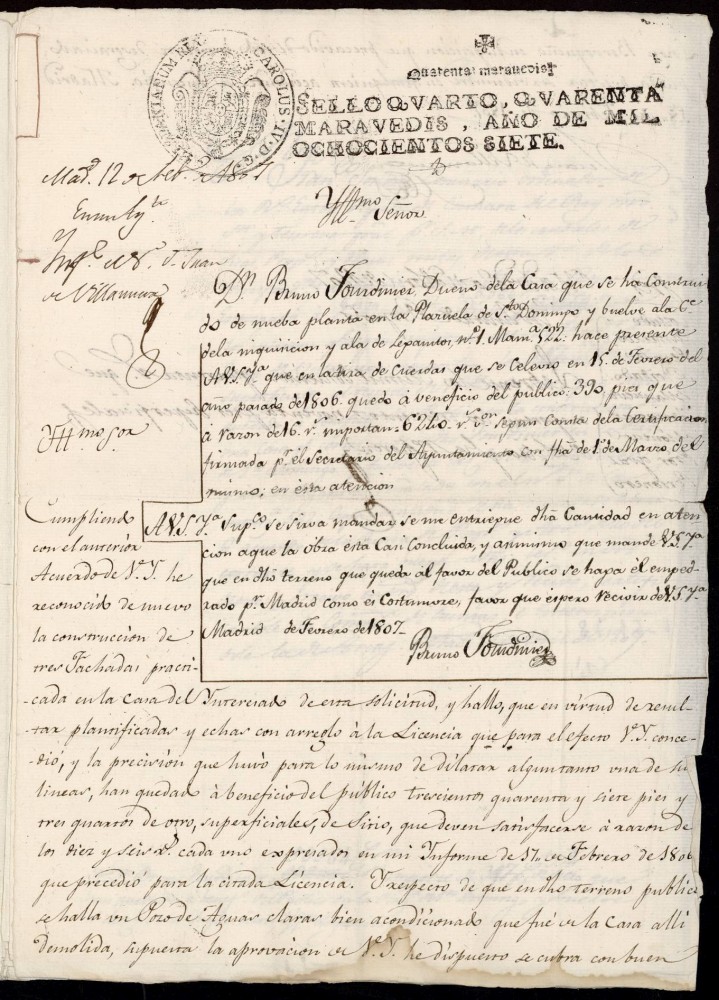 HISPANIARUM REX CAROLUS. IV. D. G.
Quarenta maravedis
SELLO QVARTO, QVARENTA
MARAVEDIS, AÑO DE MIL
OCHOCIENTOS SIETE.
Mad.d 12 de feb.o de 1807
En su Ay.to
Inf.e el S.r D. Juan
de Villanueva
Yllmo Señor
Dn Bruno Fourdinier, Dueño dela Casa que se ha Construi
do de nueba planta en la Plazuela de Sto Domingo y buelve ala Ce
dela inquisicion y ala de Lepanto, n.o 1. Manz.a 522: hace presente
A V.S. Ya que en la tira de Cuerdas que se Celevro en 15 de Fevrero del
año pasado de 1806. quedo á veneficio del publico: 390 pies que
á razon de 16 r.s importan: 6240. r.s v.on segun Consta dela Certificacion
firmada p.r el Secretario del Ayuntamiento con fha de 1.o de Marzo del
mismo; en esta atencion
A V.S. Ya Sup.co se sirva mandar se me entriegue dha Cantidad en aten
cion aque la obra ésta Casi Concluida, y asimismo que mande V.S. Ya
que en dho terreno que queda al favor del Publico se haga el emped
rado p.r Madrid como és Costumvre, favor que éspero recivir de V.S. Ya
Madrid de Fevrero de 1807
Bruno Fourdinier
Yllmo Sor
Cumpliendo
con el anterior
Acuerdo de V.e Y. he
reconocido de nuevo
la construccion de
tres Fachadas practi-
cada en la Casa del Interesado de esta solicitud, y hallo, que en virtud de resul-
tar plantificadas y echas con arreglo à la Licencia que para el efecto V.e Y. conce-
-dió, y la precisión que huvo para lo mismo de dilatar algun tanto una de sus
lineas, han quedado à beneficio del público trescientos quarenta y siete pies y
tres quartos de otro, superficiales, de Sitio, que deven satisfacerse á razon de
los diez y seis r.s cada uno expresados en mi Informe de 17 de Febrero de 1806
que precedió para la citada Licencia. Y respecto de que en dho terreno publico
se halla un Pozo de Aguas claras bien acondicionado que fué de la Casa alli
demolida, supuesta la aprovacion de V.e Y. he dispuesto se cubra con buen